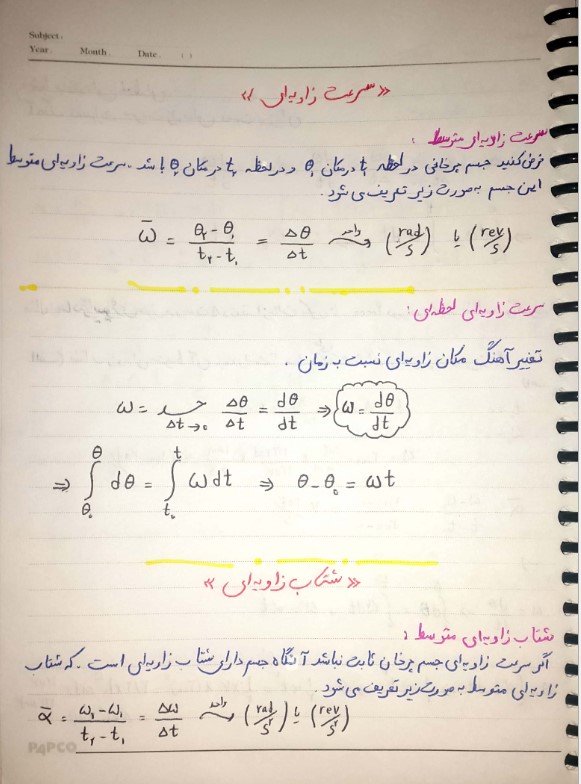 Subject.
Year. Month. Date. ( )
«سرعت زاویه‌ای»
سرعت زاویه‌ای متوسط :
فرض کنید جسم چرخانی در لحظه t₁ در مکان θ₁ و در لحظه t₂ در مکان θ₂ باشد . سرعت زاویه‌ای متوسط
این جسم به صورت زیر تعریف می شود .
ω̄ = (θ₂ - θ₁)/(t₂ - t₁) = Δθ/Δt واحد (rad/s) یا (rev/s)
سرعت زاویه‌ای لحظه‌ای :
تغییر آهنگ مکان زاویه‌ای نسبت به زمان .
ω = حد Δt→0 Δθ/Δt = dθ/dt ⇒ ω = dθ/dt
⇒ ∫_θ₀^θ dθ = ∫_t₀^t ωdt ⇒ θ - θ₀ = ωt
«شتاب زاویه‌ای»
شتاب زاویه‌ای متوسط :
اگر سرعت زاویه‌ای جسم چرخان ثابت نباشد آنگاه جسم دارای شتاب زاویه‌ای است . که شتاب
زاویه‌ای متوسط به صورت زیر تعریف می شود .
ᾱ = (ω₂ - ω₁)/(t₂ - t₁) = Δω/Δt واحد (rad/s²) یا (rev/s²)
PAPCO